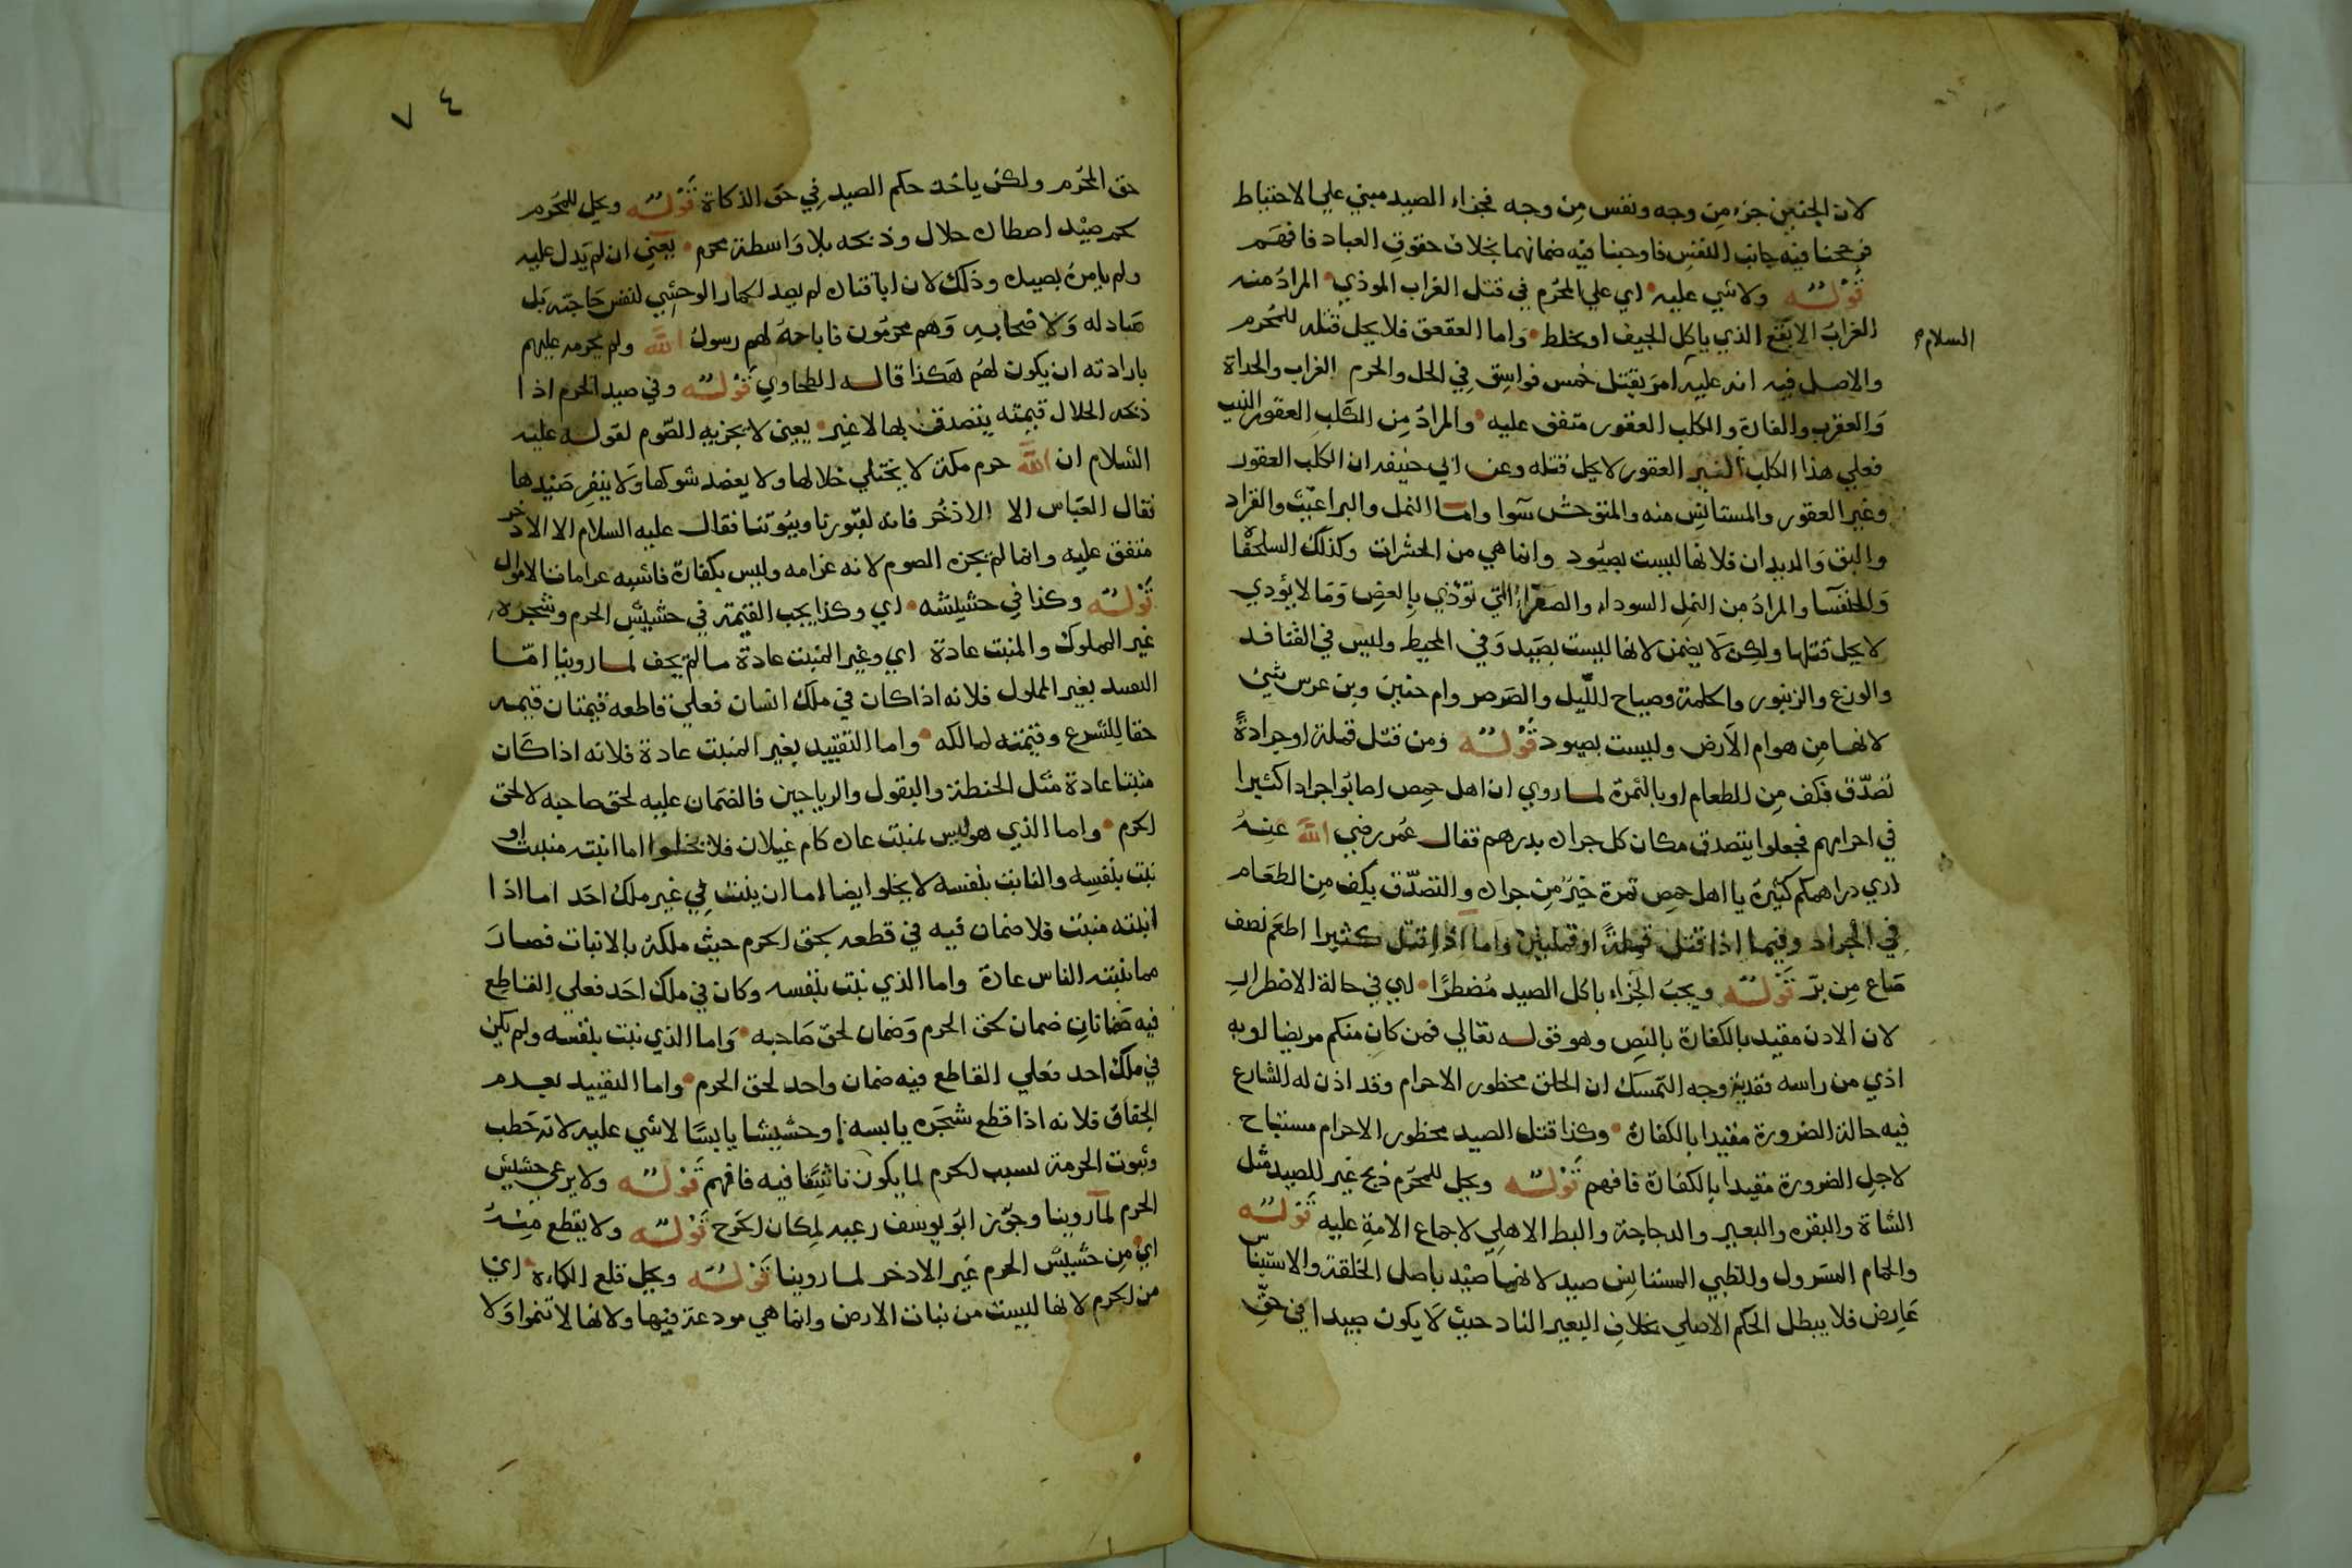 لان الجنين جزء من وجه ونفس من وجه فجزاء الصيد مبني علي الاحتياط
فرجحنا فيه جانب النفس فاوجبنا فيه ضمانهما بخلاف حقوق العباد فافهم
قوله ولا شي عليه اي علي المحرم في قتل الغراب الموذي المراد منه
الغراب الابقع الذي ياكل الجيف او يخلط واما العقعق فلا يحل قتله للمحرم
السلام
والاصل فيه انه عليه امر بقتل خمس فواسق في الحل والحرم الغراب والحداة
والعقرب والفارة والكلب العقور متفق عليه والمراد من الكلب العقور الذيب
فعلي هذا الكلب الغير العقور لا يحل قتله وعن ابي حنيفه ان الكلب العقور
وغير العقور والمستانس منه والمتوحش سوا واما النمل والبراغيث والقراد
والبق والديدان فلانها ليست بصيود وانما هي من الحشرات وكذلك السلحفا
والخنفسا والمراد من النمل السوداء والصفراء التي توذي بالعض وما لا يؤدي
لا يحل قتلها ولكن لا يضمن لانها ليست بصيد وفي المحيط وليس في القنافد
والوزع والزنبور والحلمة وصياح الليل والصرصر وام حنين وبن عرس شيئ
لانها من هوام الارض وليست بصيود قوله ومن قتل قملة او جرادة
تصدق بكف من الطعام او بالتمرة لما روي ان اهل حمص اصابوا جرادا كثيرا
في احرامهم فجعلوا يتصدق مكان كل جراد بدرهم فقال عمر رضي الله عنه
اري دراهمكم كثيرة يا اهل حمص تمرة خير من جراد والتصدق بكف من الطعام
في الجراد وفيما اذا قتل قملة او قملتين واما اذا قتل كثيرا اطعم نصف
صاع من بر قوله ويجب الجزاء باكل الصيد مضطرا اي في حالة الاضطرار
لان الادن مقيد بالكفارة بالنص وهو قوله تعالي فمن كان منكم مريضا او به
اذي من راسه ففدية وجه التمسك ان الحلق محظور الاحرام وقد اذن له الشارع
فيه حالة الضرورة مقيدا بالكفارة وكذا قتل الصيد محظور الاحرام مستباح
لاجل الضرورة مقيدا بالكفارة فافهم قوله ويحل للمحرم ذبح غير للصيد مثل
الشاة والبقره والبعير والدجاجة والبط الاهلي لاجماع الامة عليه قوله
والحمام المسرول والظبي المستانس صيد لانهما صيد باصل الخلقة والاستيناس
عارض فلا يبطل الحكم الاصلي بخلاف البعير الناد حيث لا يكون صيدا في حق
٧٤
حق المحرم ولكن ياخد حكم الصيد في حق الذكاة قوله ويحل للمحرم
لحم صيد اصطاد حلال وذبحه بلا واسطة محرم يعني ان لم يدل عليه
ولم يامره بصيده وذلك لان ابا قتادة لم يصد الحمار الوحشي لنفس حاجته بل
صاد له ولاصحابه وهم محرمون فاباحه لهم رسول الله ولم يحرمه عليهم
بارادته ان يكون لهم هكذا قاله الطحاوي قوله وفي صيد الحرم اذا
ذبحه الحلال قيمته يتصدق بها لا غير يعني لا يجزيه الصوم لقوله عليه
السلام ان الله حرم مكة لا يختلي خلالها ولا يعضد شوكها ولا ينفر صيدها
فقال العباس الا الاذخر فانه لقبورنا وبيوتنا فقال عليه السلام الا الاذخر
متفق عليه وانما لم يجزه الصوم لانه غرامه وليس بكفارة فاشبه غرامات الاموال
قوله وكذا في حشيشه اي وكذا يجب القيمة في حشيش الحرم وشجره
غير المملوك والمنبت عادة اي وغير المنبت عادة ما لم يجف لما روينا اما
التقييد بغير المملوك فلانه اذا كان في ملك انسان فعلي قاطعه قيمتان قيمه
حقا للشرع وقيمته لمالكه واما التقييد بغير المنبت عادة فلانه اذا كان
منبتا عادة مثل الحنطة والبقول والرياحين فالضمان عليه لحق صاحبه لا لحق
الحرم واما الذي هو ليس بمنبت عاده كام غيلان فلا يخلوا اما انبته منبت او
نبت بنفسه والنابت بنفسه لا يخلو ايضا اما ان ينبت في غير ملك احد اما اذا
انبته منبت فلا ضمان فيه في قطعه بحق الحرم حيث ملكه بالانبات فصار
مما ينبته الناس عادة واما الذي نبت بنفسه وكان في ملك احد فعلي القاطع
فيه ضمانان ضمان لحق الحرم وضمان لحق صاحبه واما الذي نبت بنفسه ولم يكن
في ملك احد فعلي القاطع فيه ضمان واحد لحق الحرم واما التقييد بعدم
الجفاف فلانه اذا قطع شجره يابسه او حشيشا يابسا لا شي عليه لانه حطب
وثبوت الحرمة بسبب الحرم لما يكون نافيه فافهم قوله ولا يرعي حشيش
الحرم لما روينا وجوز ابو يوسف رعيه لمكان الحرج قوله ولا يقطع منه
اي من حشيش الحرم غير الاذخر لما روينا قوله ويحل قلع الكماة اي
من الحرم لانها ليست من نبات الارض وانما هي مودعة فيها ولانها لا تنموا ولا